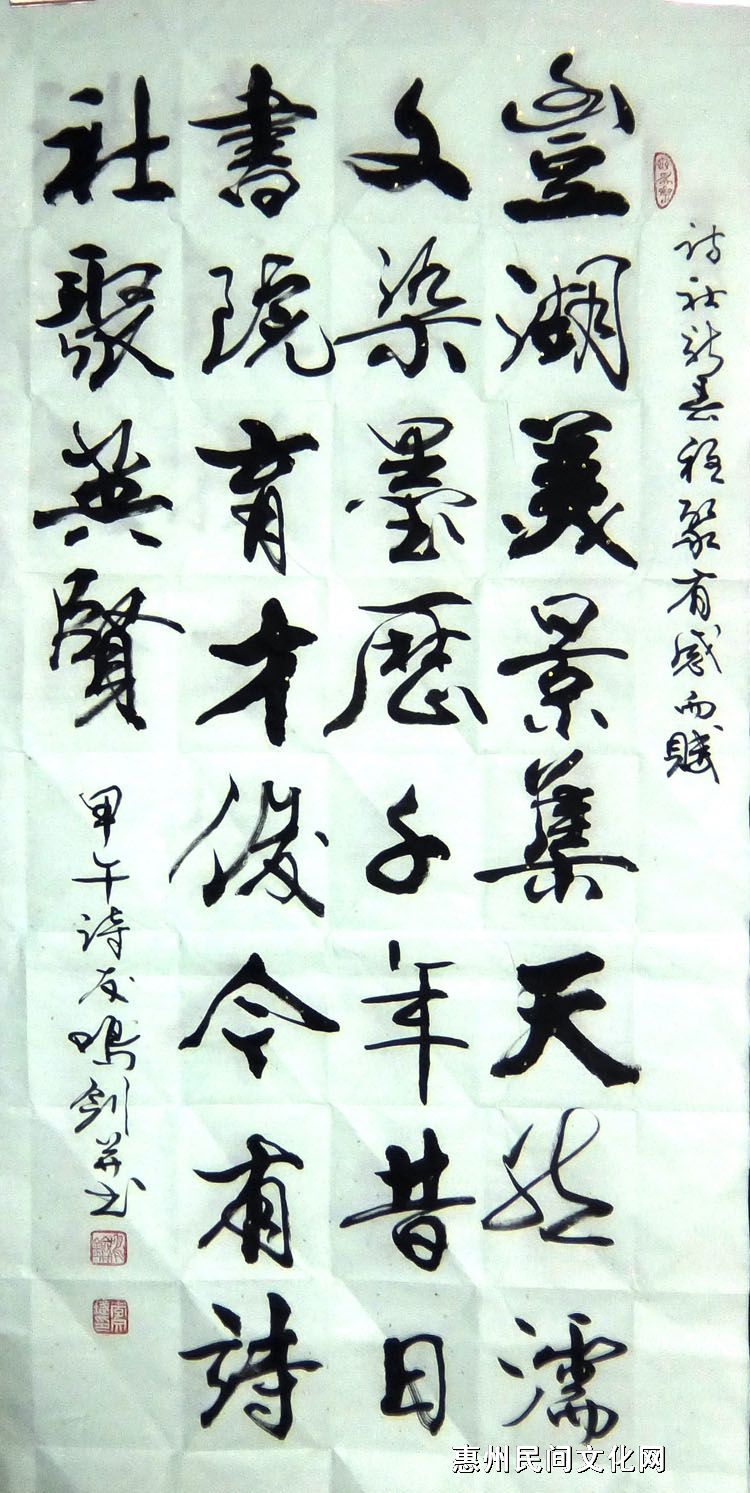 诗社新春雅聚有感而賦
豐湖美景集天然濡
文染墨歷千年昔日
書院育才俊今有詩
社聚英賢
甲午詩友鳴劍并书
惠州民间文化网